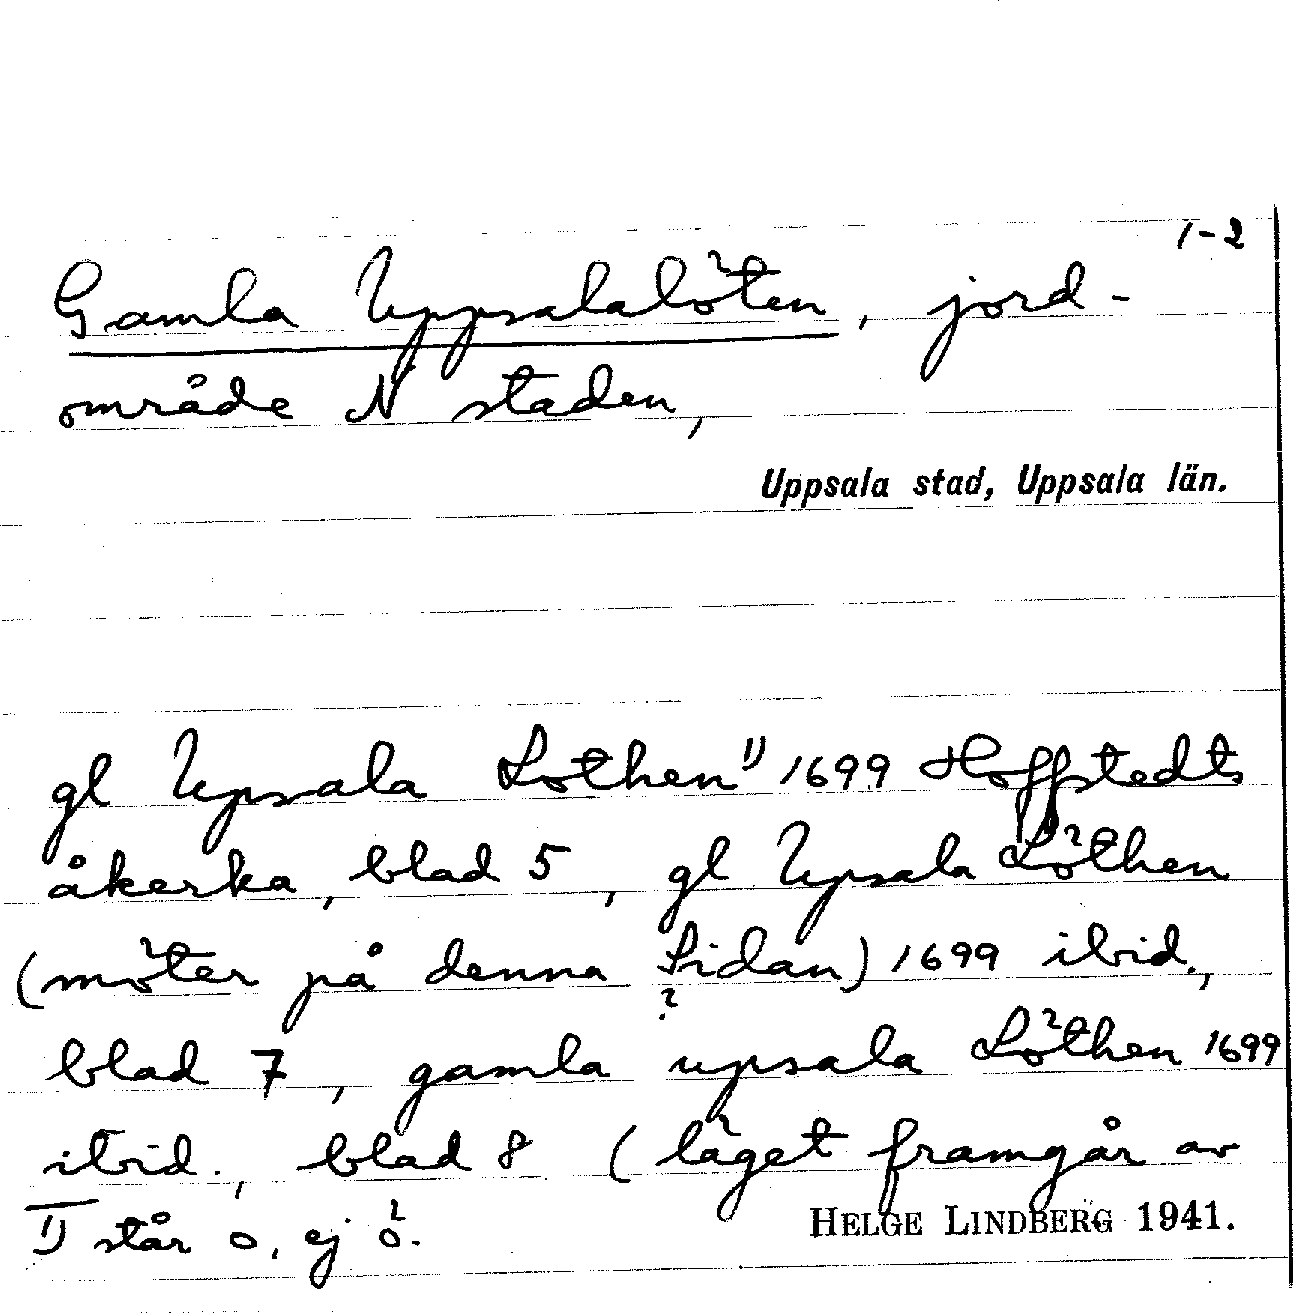 1-2
Gamla Uppsalalöten, jord-
område N staden,
Uppsala stad, Uppsala län.
gl Upsala Lothen 1) 1699 Hoffstedts
åkerka, blad 5, gl Upsala Löthen
(möter på denna Sidan) 1699 ibid.,
?
blad 7, gamla upsala Löthen 1699
ibid., blad 8 (läget framgår av
1) står o, ej ö.
HELGE LINDBERG 1941.